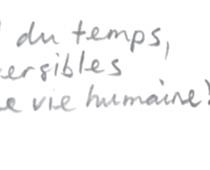 du temps,
ersibles
e vie humaine?